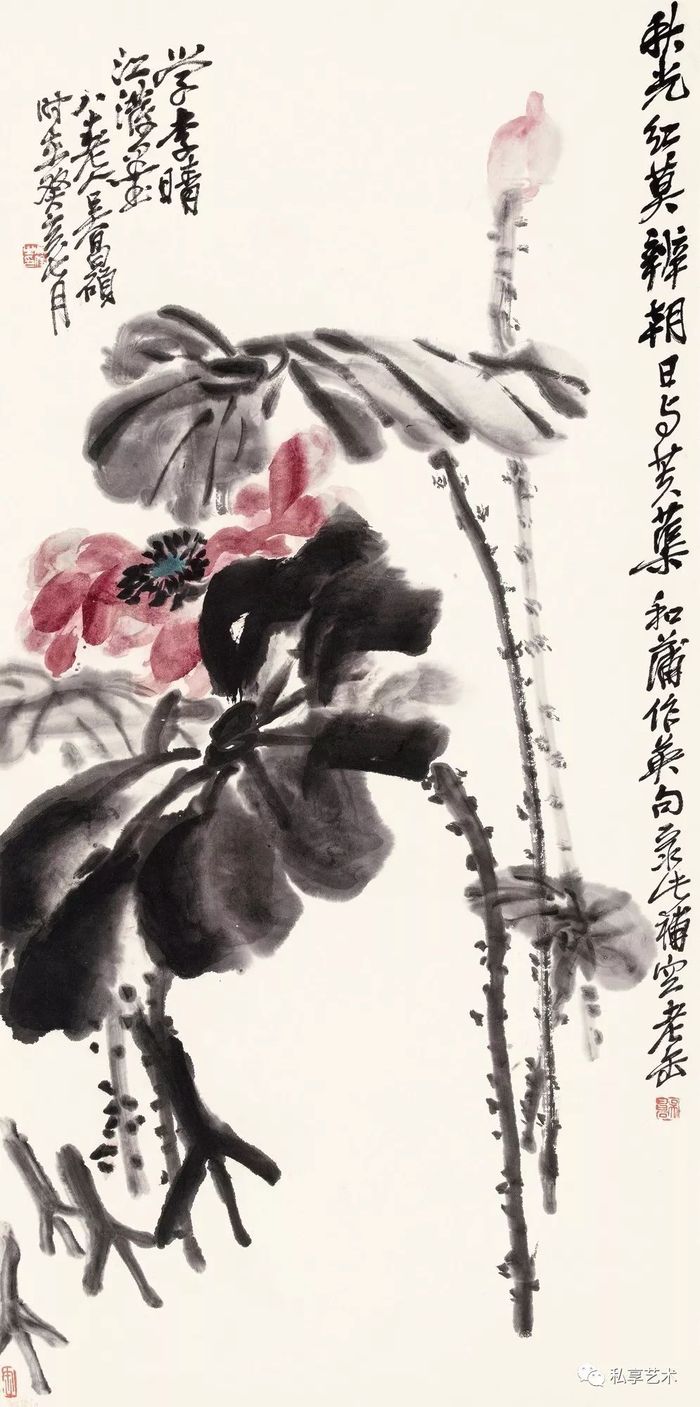 秋光红莫辨朝日与芙蕖 和蒲作英句录此補空老缶
学李晴
江潑墨
八十老人吴昌碩
时在癸亥七月
私享艺术